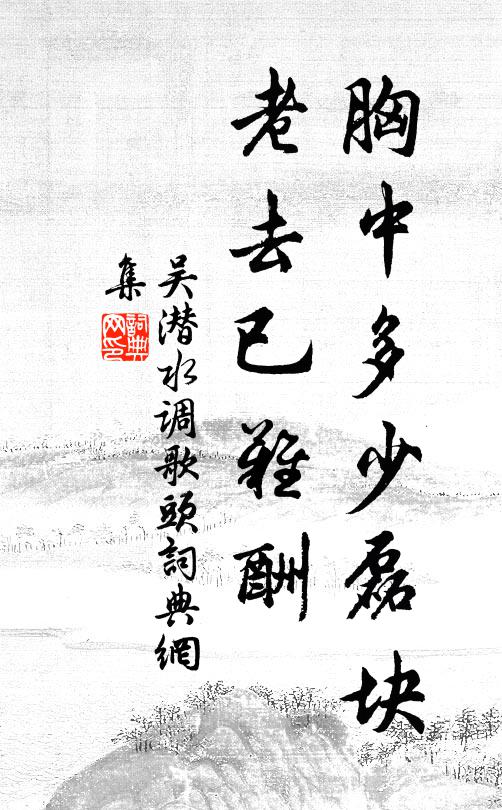 胸中多少磊块
老去已難酬
吴潜水调歌頭詞典網
集
詞典网印